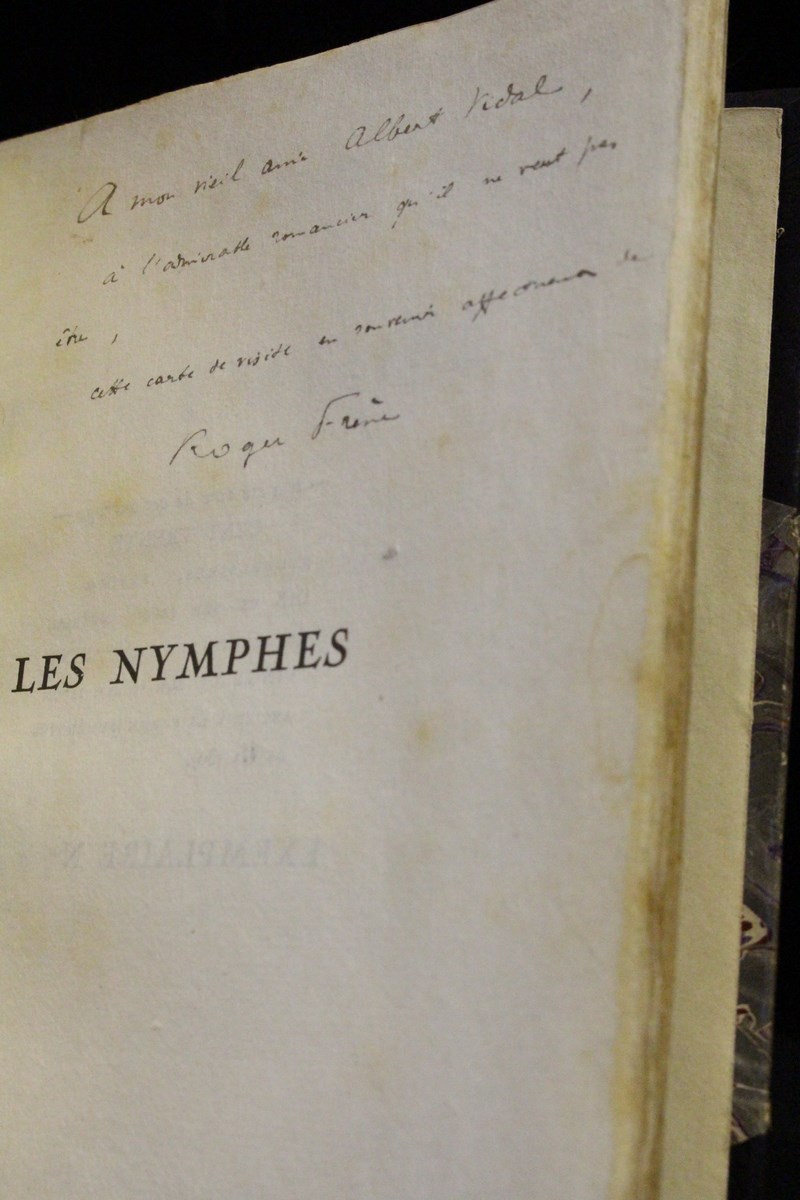 A mon vieil ami Albert Vidal,
à l'admirable romancier qu'il ne veut pas
être,
cette carte de visite en souvenir affectueux de
Roger Frêne
LES NYMPHES
EXEMPLAIRE N